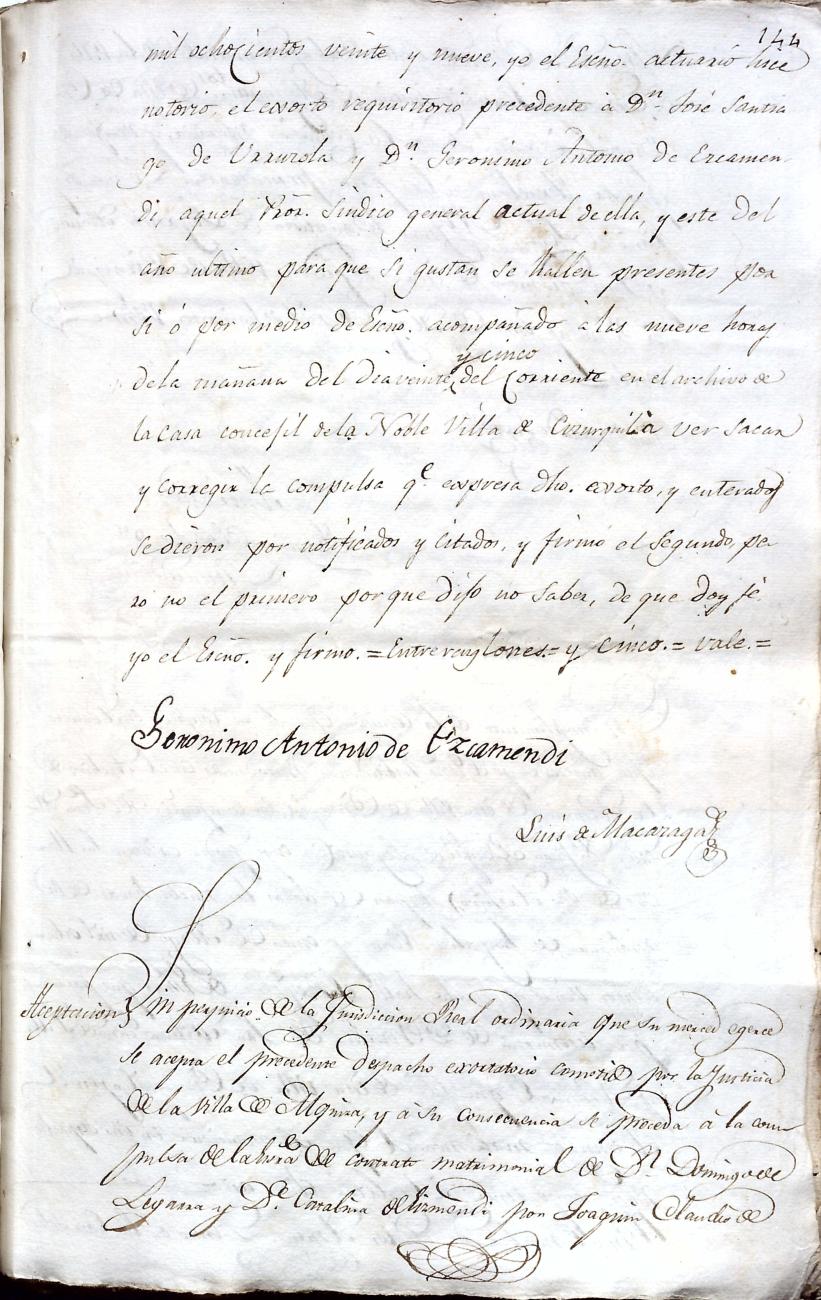 144
mil ochocientos veinte y nueve, yo el Escño. actuario hice
notorio, el exorto requisitorio precedente à Dn. José Santia
go de Urruzola y Dn. Geronimo Antonio de Ezcamen-
di, aquel Pror. Sindico general actual de ella, y este del
año ultimo para que si gustan se hallen presentes por
si ó por medio de Escño. acompañado à las nueve horas
y cinco
dela mañana del dia veinte del corriente en el archivo de
la casa concejil dela Noble Villa de Cizurquil à ver sacar
y corregir la compulsa qe. expresa dho. exorto, y enterados
se dieron por notificados y citados, y firmó el segundo, pe-
ro no el primero porque dijo no saber, de que doy fé
yo el Escño. y firmo.=Entre renglones=y cinco.=vale.=
Geronimo Antonio de Ezcamendi
Luis de Macazaga
Aceptacion} Sin perjuicio de la Jurisdiccion Real ordinaria que su merced egerce
se acepta el precedente despacho exortatorio cometido por la Justicia
de la Villa de Alquiza, y à su consecuencia se proceda à la com-
pulsa de la de contrato matrimonial de Dn. Domingo de
Legarra y Da. Catalina de por Joaquin Claudio de